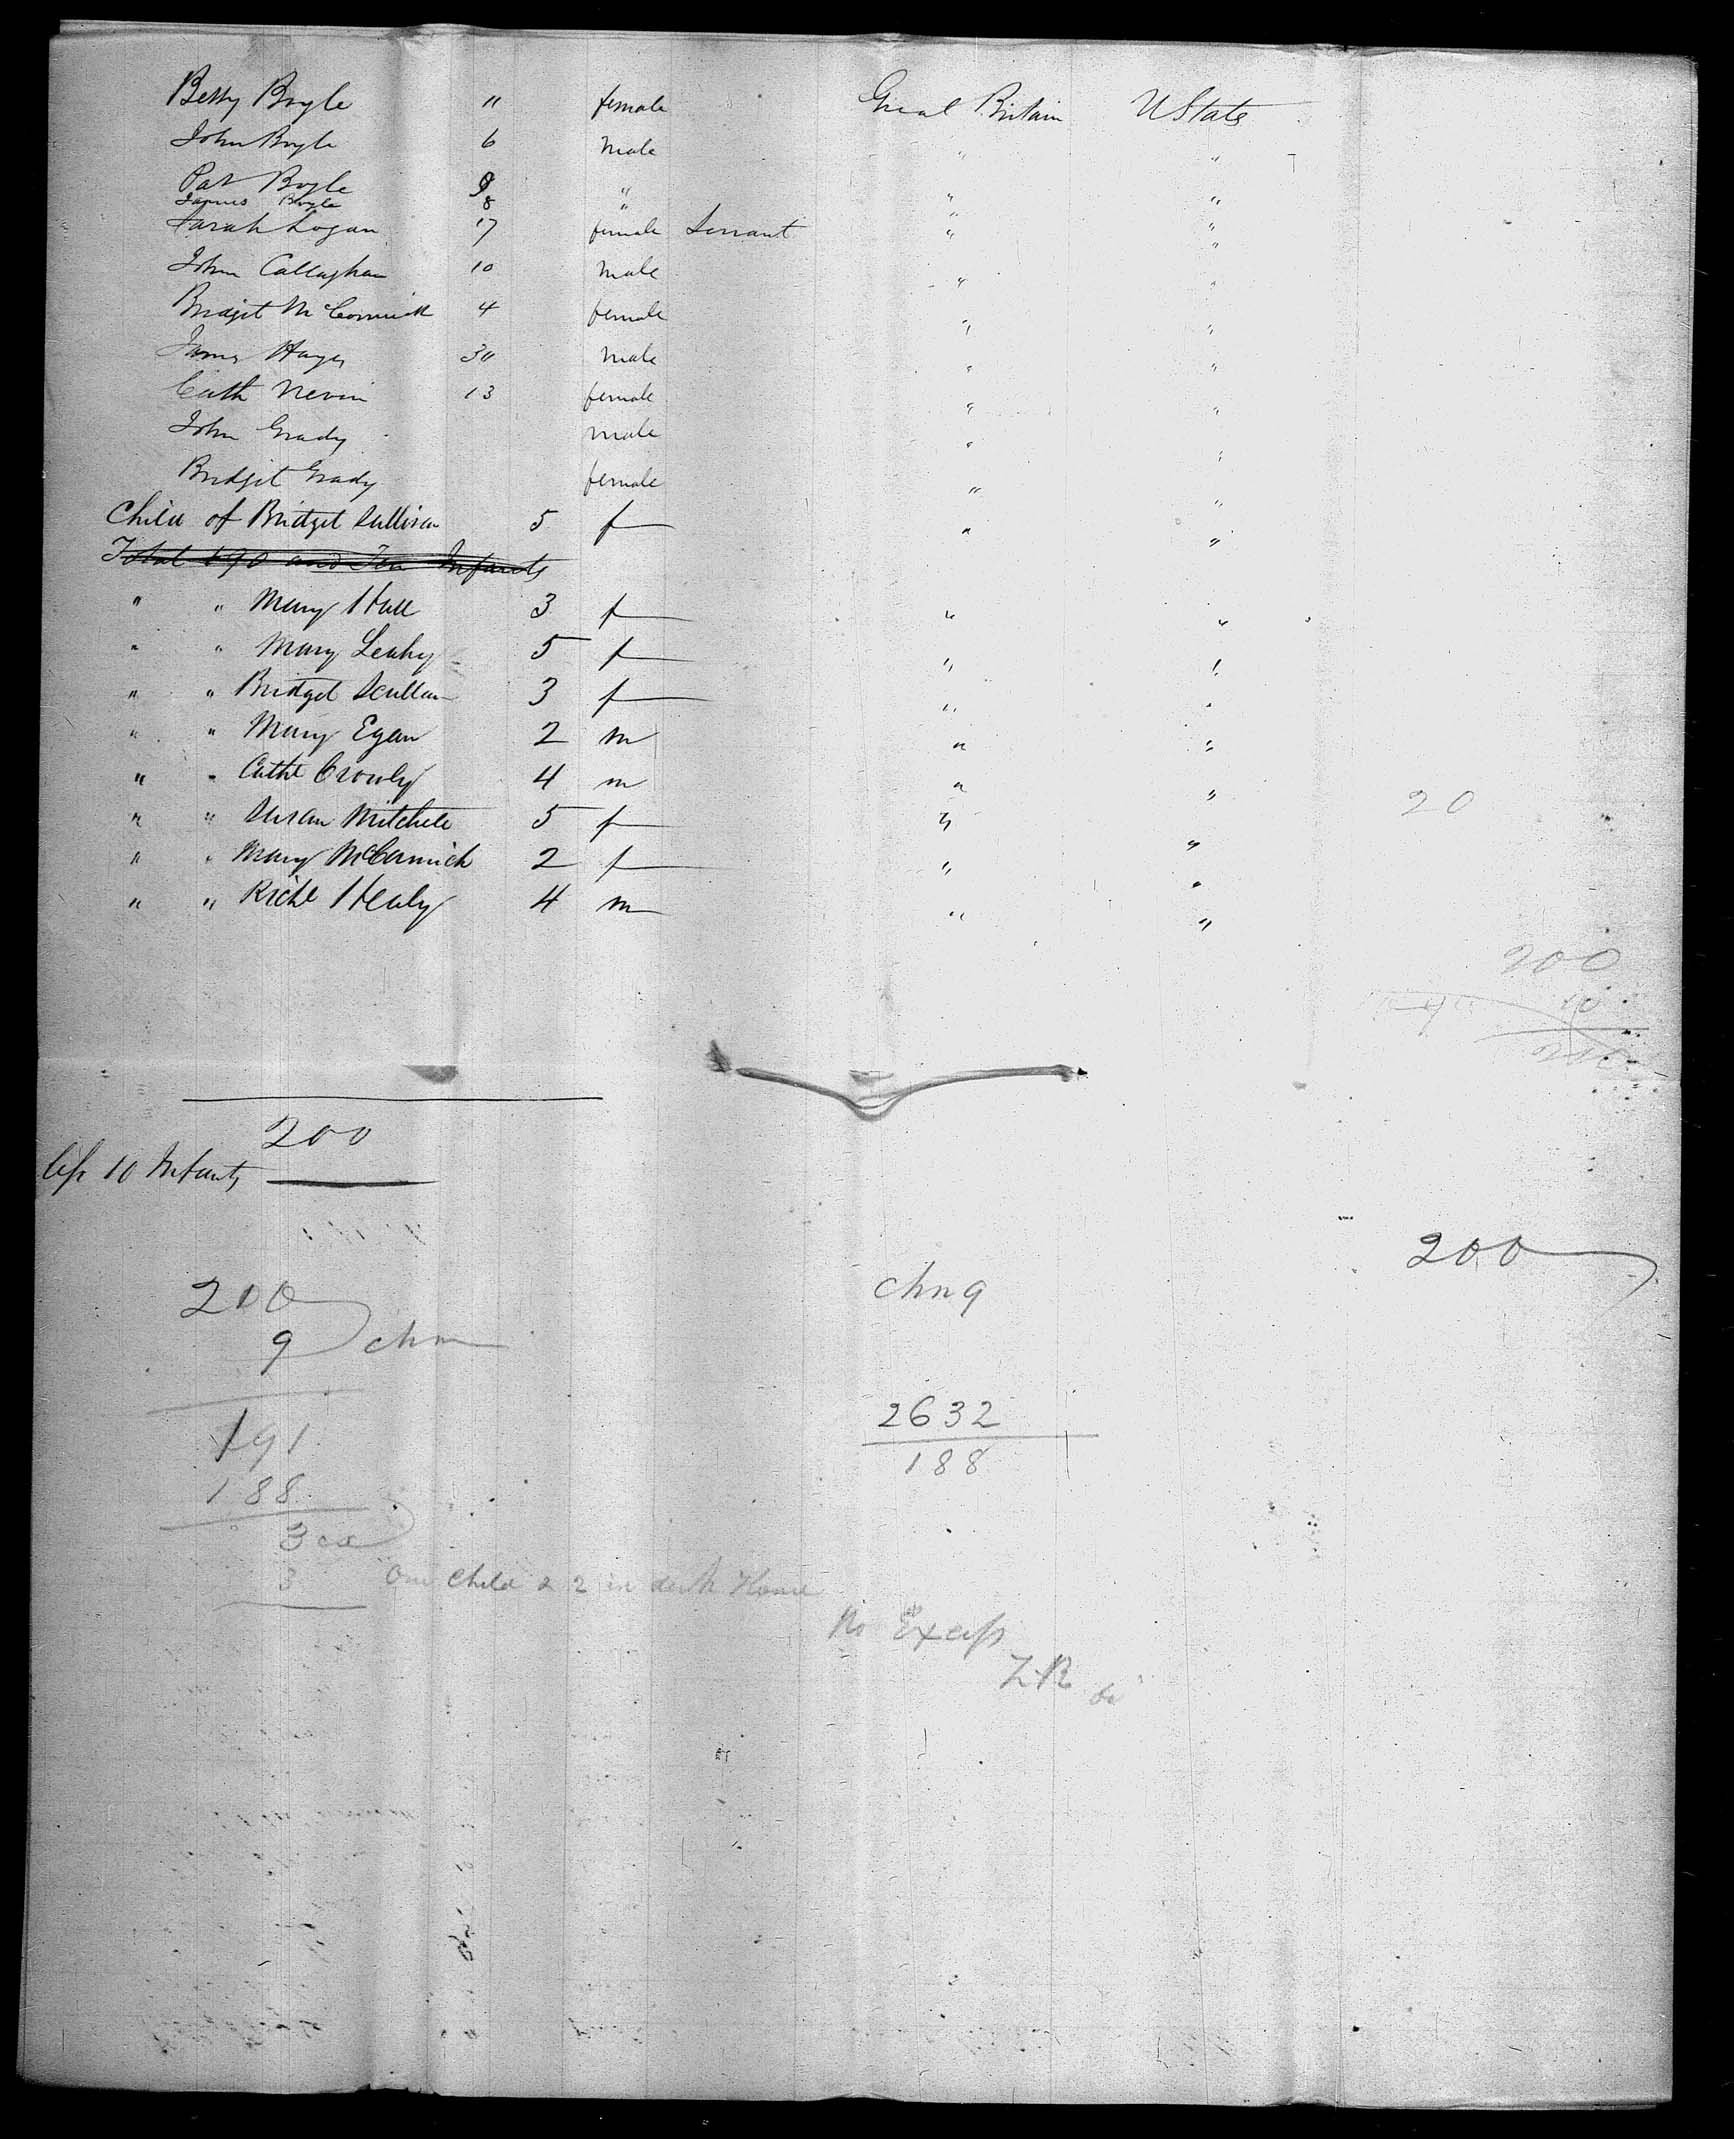 Betty Boyle " female Great Britain U States
John Boyle 6 male " "
Pat Boyle 9 " " "
James Boyle 8 " " "
Sarah Logan 17 female Servant " "
John Callaghan 10 male " "
Bridgit McCormick 4 female " "
James Hayes 30 male " "
Cath Nevin 13 female " "
John Grady male " "
Bridgit Grady female " "
Child of Bridget Sullivan 5 f " "
Total 190 and Ten Infants
" " Mary Hall 3 f " "
" " Mary Leahy 5 f " "
" " Bridget Scullan 3 f " "
" " Mary Egan 2 m " "
" " Cathe Crowly 4 m " "
20
" " Susan Mitchell 5 f " "
" " Mary McCormick 2 f " "
" " Richd Healy 4 m " "
200
10
210
200
less 10 Infants
200
200
9 chn
chn 9
191
188
2632
188
3 ex
3 One child & 2 in deck House
No Excess